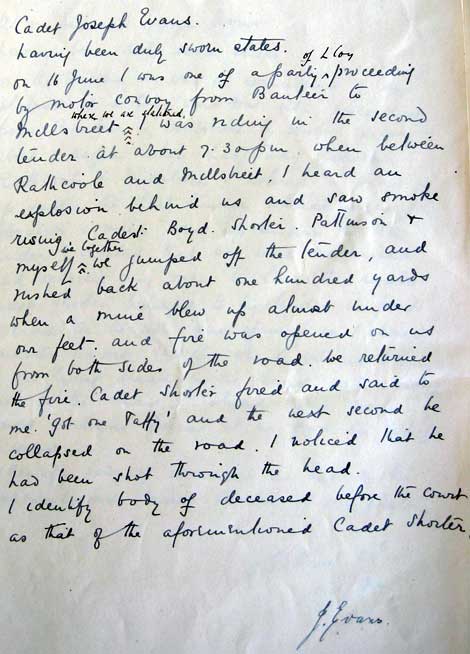 Cadet Joseph Evans.
having been duly sworn states.
of L Coy
on 16 June I was one of a party ^ proceeding
by motor convoy from Banteer to
where we are stationed.
Millstreet ^ I was riding in the second
tender. at about 7.30 pm. when between
Rathcoole and Millstreet, I heard an
explosion behind us and saw smoke
rising. Cadets: Boyd. Shorter. Pattinson &
together
myself ^ we jumped off the tender, and
rushed back about one hundred yards
when a mine blew up almost under
our feet. and fire was opened on us
from both sides of the road. We returned
the fire. Cadet Shorter fired and said to
me. 'got one Taffy' and the next second he
collapsed on the road. I noticed that he
had been shot through the head.
I identify body of deceased before the court
as that of the aforementioned Cadet Shorter.
J. Evans.